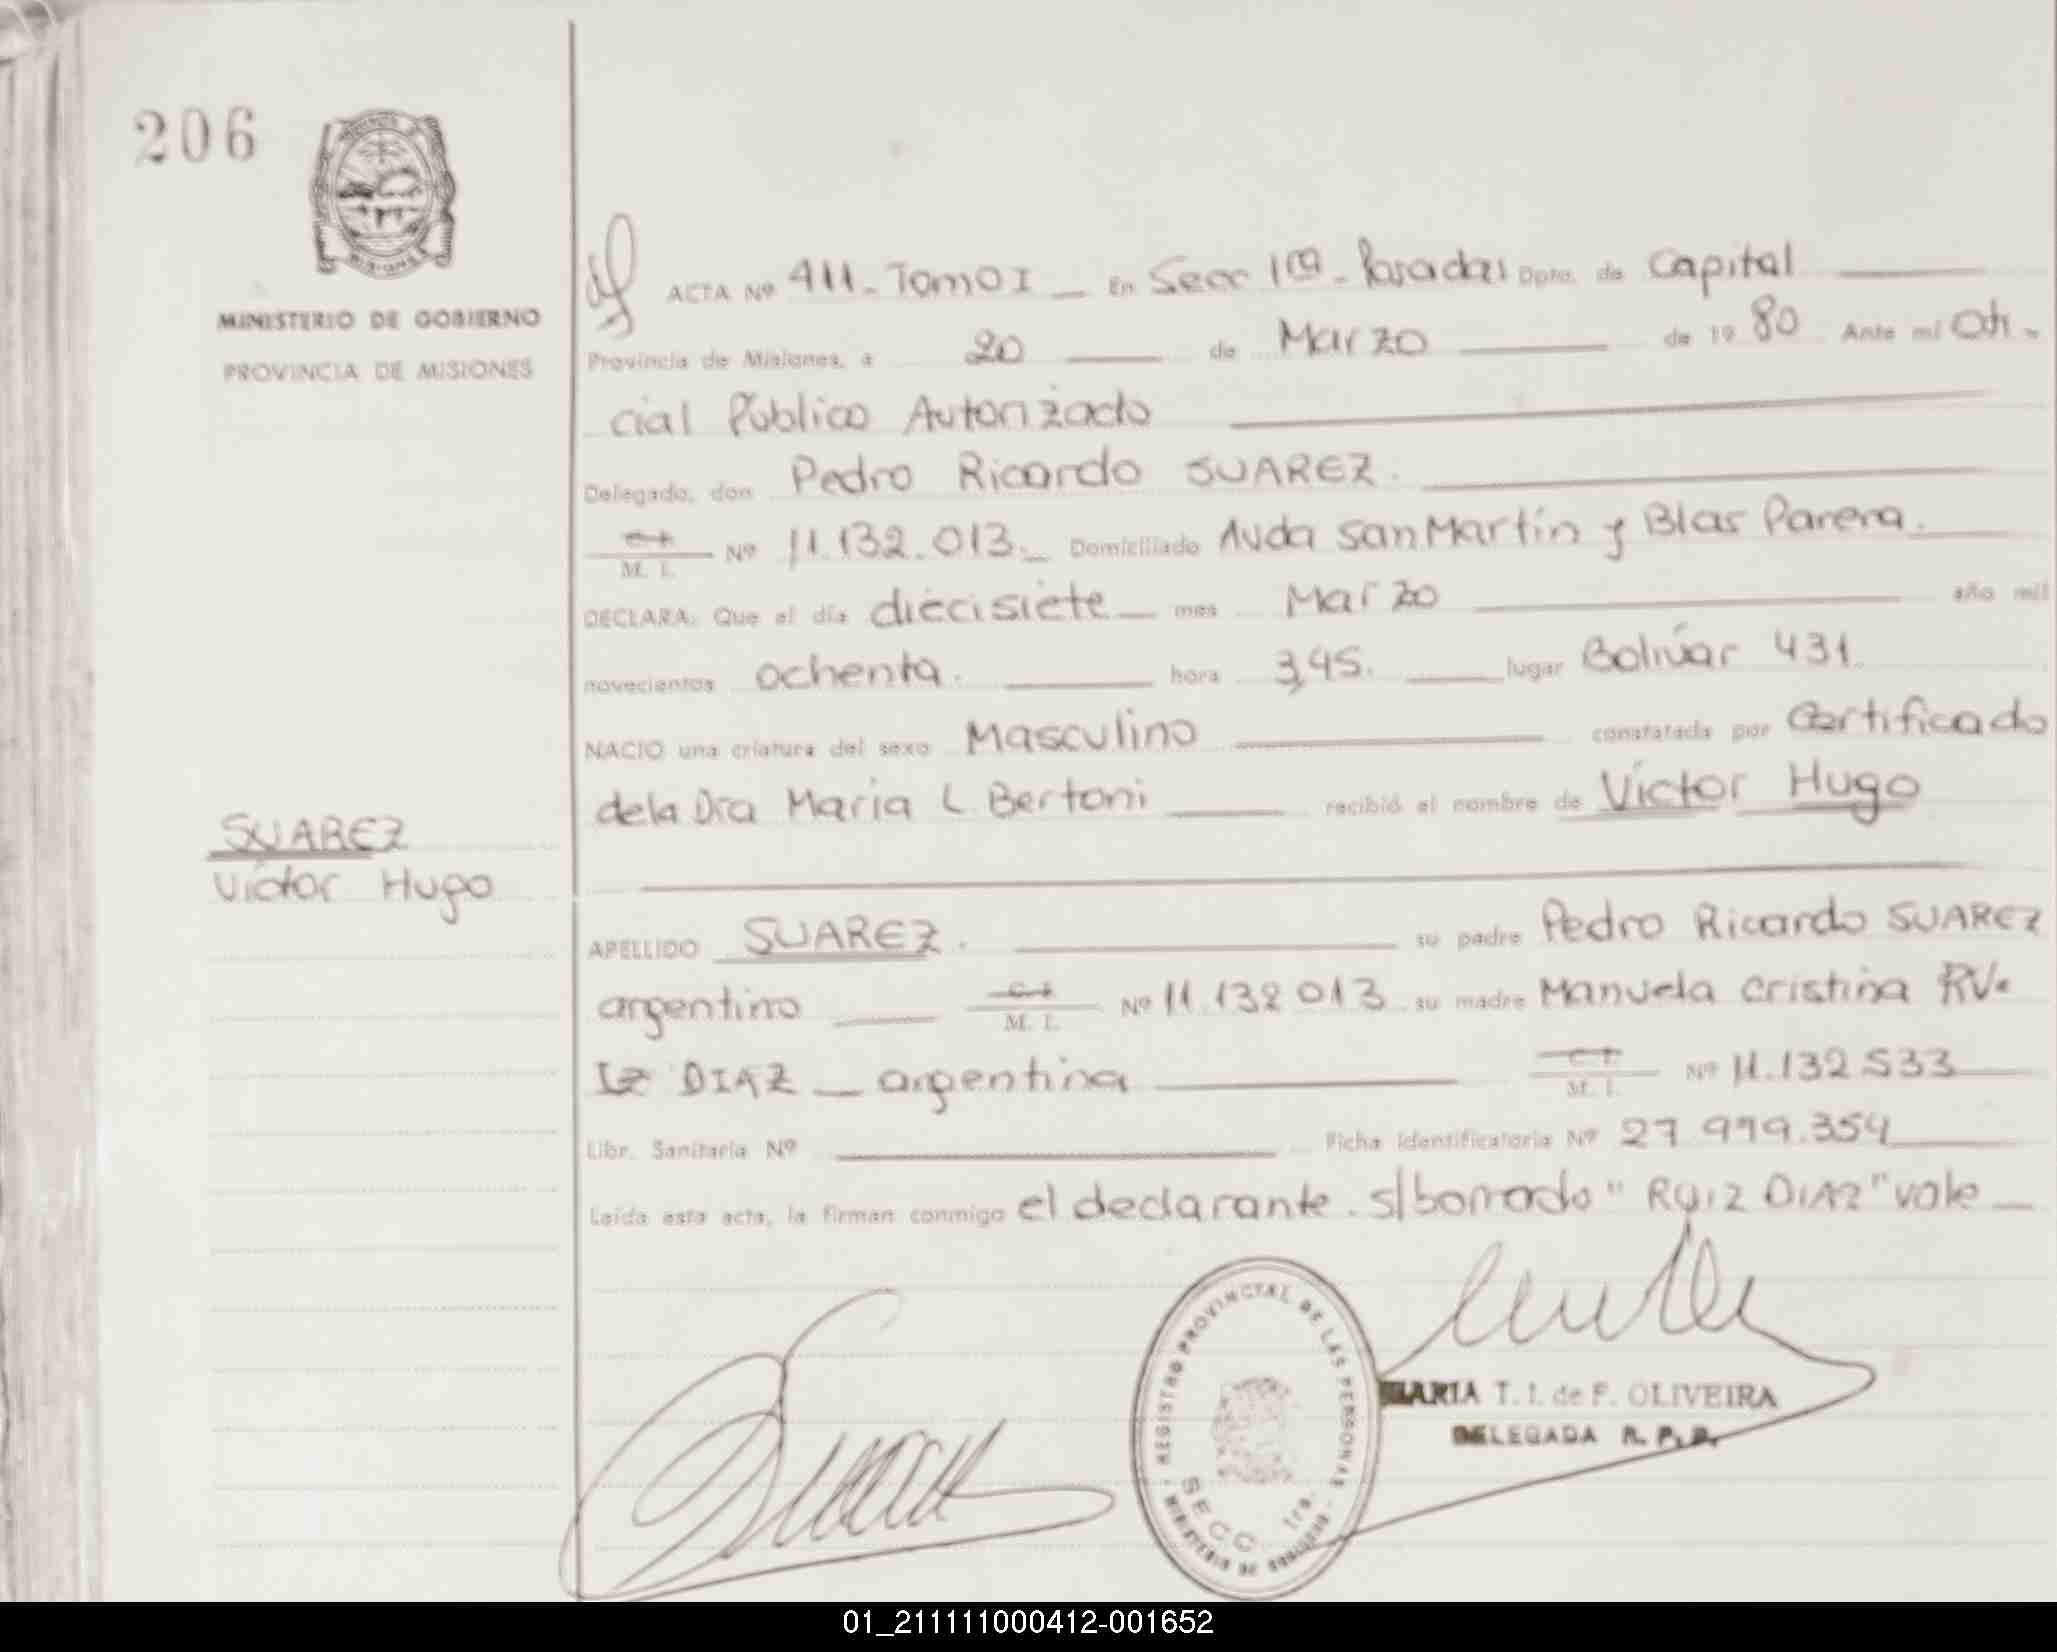 206
MINISTERIO DE GOBIERNO
PROVINCIA DE MISIONES
ACTA Nº 411 - Tomo I _ En Secc 1ra - Posadas Dpto. de Capital
Provincia de Misiones, a 20 de Marzo de 19 80 Ante mí Ofi-
cial Público Autorizado
Delegado, don Pedro Ricardo SUAREZ.
C.I. M. I. Nº 11.132.013._ Domiciliado Avda San Martín y Blas Parera.
DECLARA: Que el día diecisiete _ mes Marzo año mil
novecientos ochenta. hora 3,45. lugar Bolívar 431.
NACIO una criatura del sexo Masculino constatada por Certificado
de la Dra Maria L. Bertoni recibió el nombre de Víctor Hugo
SUAREZ
Víctor Hugo
APELLIDO SUAREZ. su padre Pedro Ricardo SUAREZ
argentino C.I. M. I. Nº 11.132.013 su madre Manuela Cristina RU-
IZ DIAZ _ argentina C.I. M. I. Nº 11.132.533
Libr. Sanitaria Nº Ficha Identificatoria Nº 27.979.354
Leída esta acta, la firman conmigo el declarante. s/borrado "RUIZ DIAZ" vale _
REGISTRO PROVINCIAL DE LAS PERSONAS
SECC. 1ra.
MINISTERIO DE GOBIERNO
MARIA T. I. de F. OLIVEIRA
DELEGADA R. P. P.
01_211111000412-001652